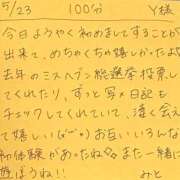 5/23 100分 Y様
今日ようやく初めましてすることが
出来て、めちゃくちゃ嬉しかったよ
去年のミスヘブン総選挙投票し
てくれたり、ずっと写メ日記も
チェックしてくれていて、凄く会えて
嬉しい(*´˘`*)♡お互いいろんな
初体験があったね また一緒に
遊ぼうね!! みと